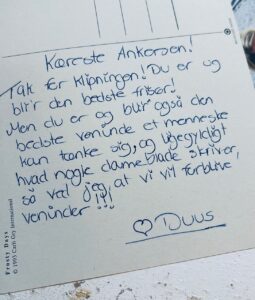 Kæreste Ankersen!
Tak for klipningen! Du er og
blir den bedste frisør!
Men du er og blir også den
bedste veninde et menneske
kan tænke sig, og ligegyldigt
hvad nogle dameblade skriver,
så ved jeg, at vi vil forblive
veninder!!!
♡ Duus
Frosty Days
© 1995 Cards Only International